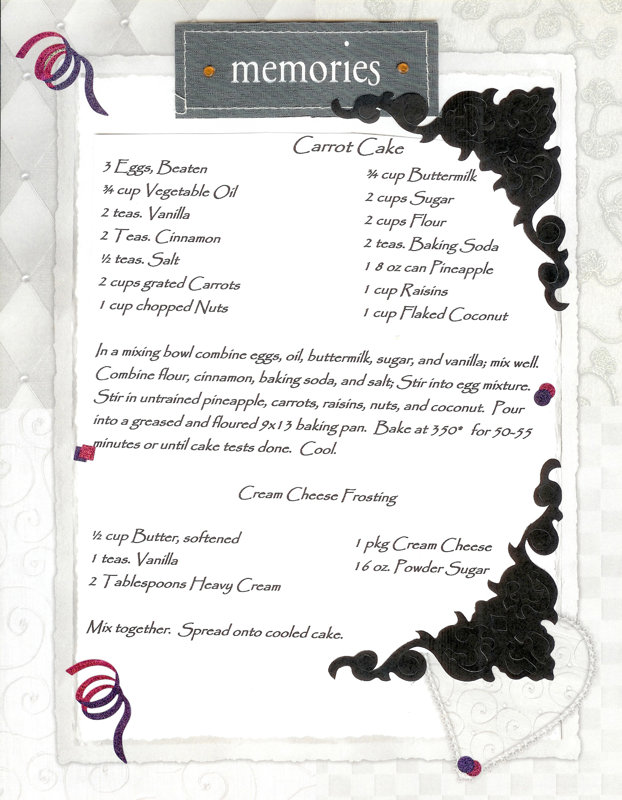 memories
Carrot Cake
3 Eggs, Beaten
¾ cup Vegetable Oil
2 teas. Vanilla
2 Teas. Cinnamon
½ teas. Salt
2 cups grated Carrots
1 cup chopped Nuts
¾ cup Buttermilk
2 cups Sugar
2 cups Flour
2 teas. Baking Soda
1 8 oz can Pineapple
1 cup Raisins
1 cup Flaked Coconut
In a mixing bowl combine eggs, oil, buttermilk, sugar, and vanilla; mix well.
Combine flour, cinnamon, baking soda, and salt; Stir into egg mixture.
Stir in untrained pineapple, carrots, raisins, nuts, and coconut. Pour
into a greased and floured 9x13 baking pan. Bake at 350° for 50-55
minutes or until cake tests done. Cool.
Cream Cheese Frosting
½ cup Butter, softened
1 teas. Vanilla
2 Tablespoons Heavy Cream
1 pkg Cream Cheese
16 oz. Powder Sugar
Mix together. Spread onto cooled cake.